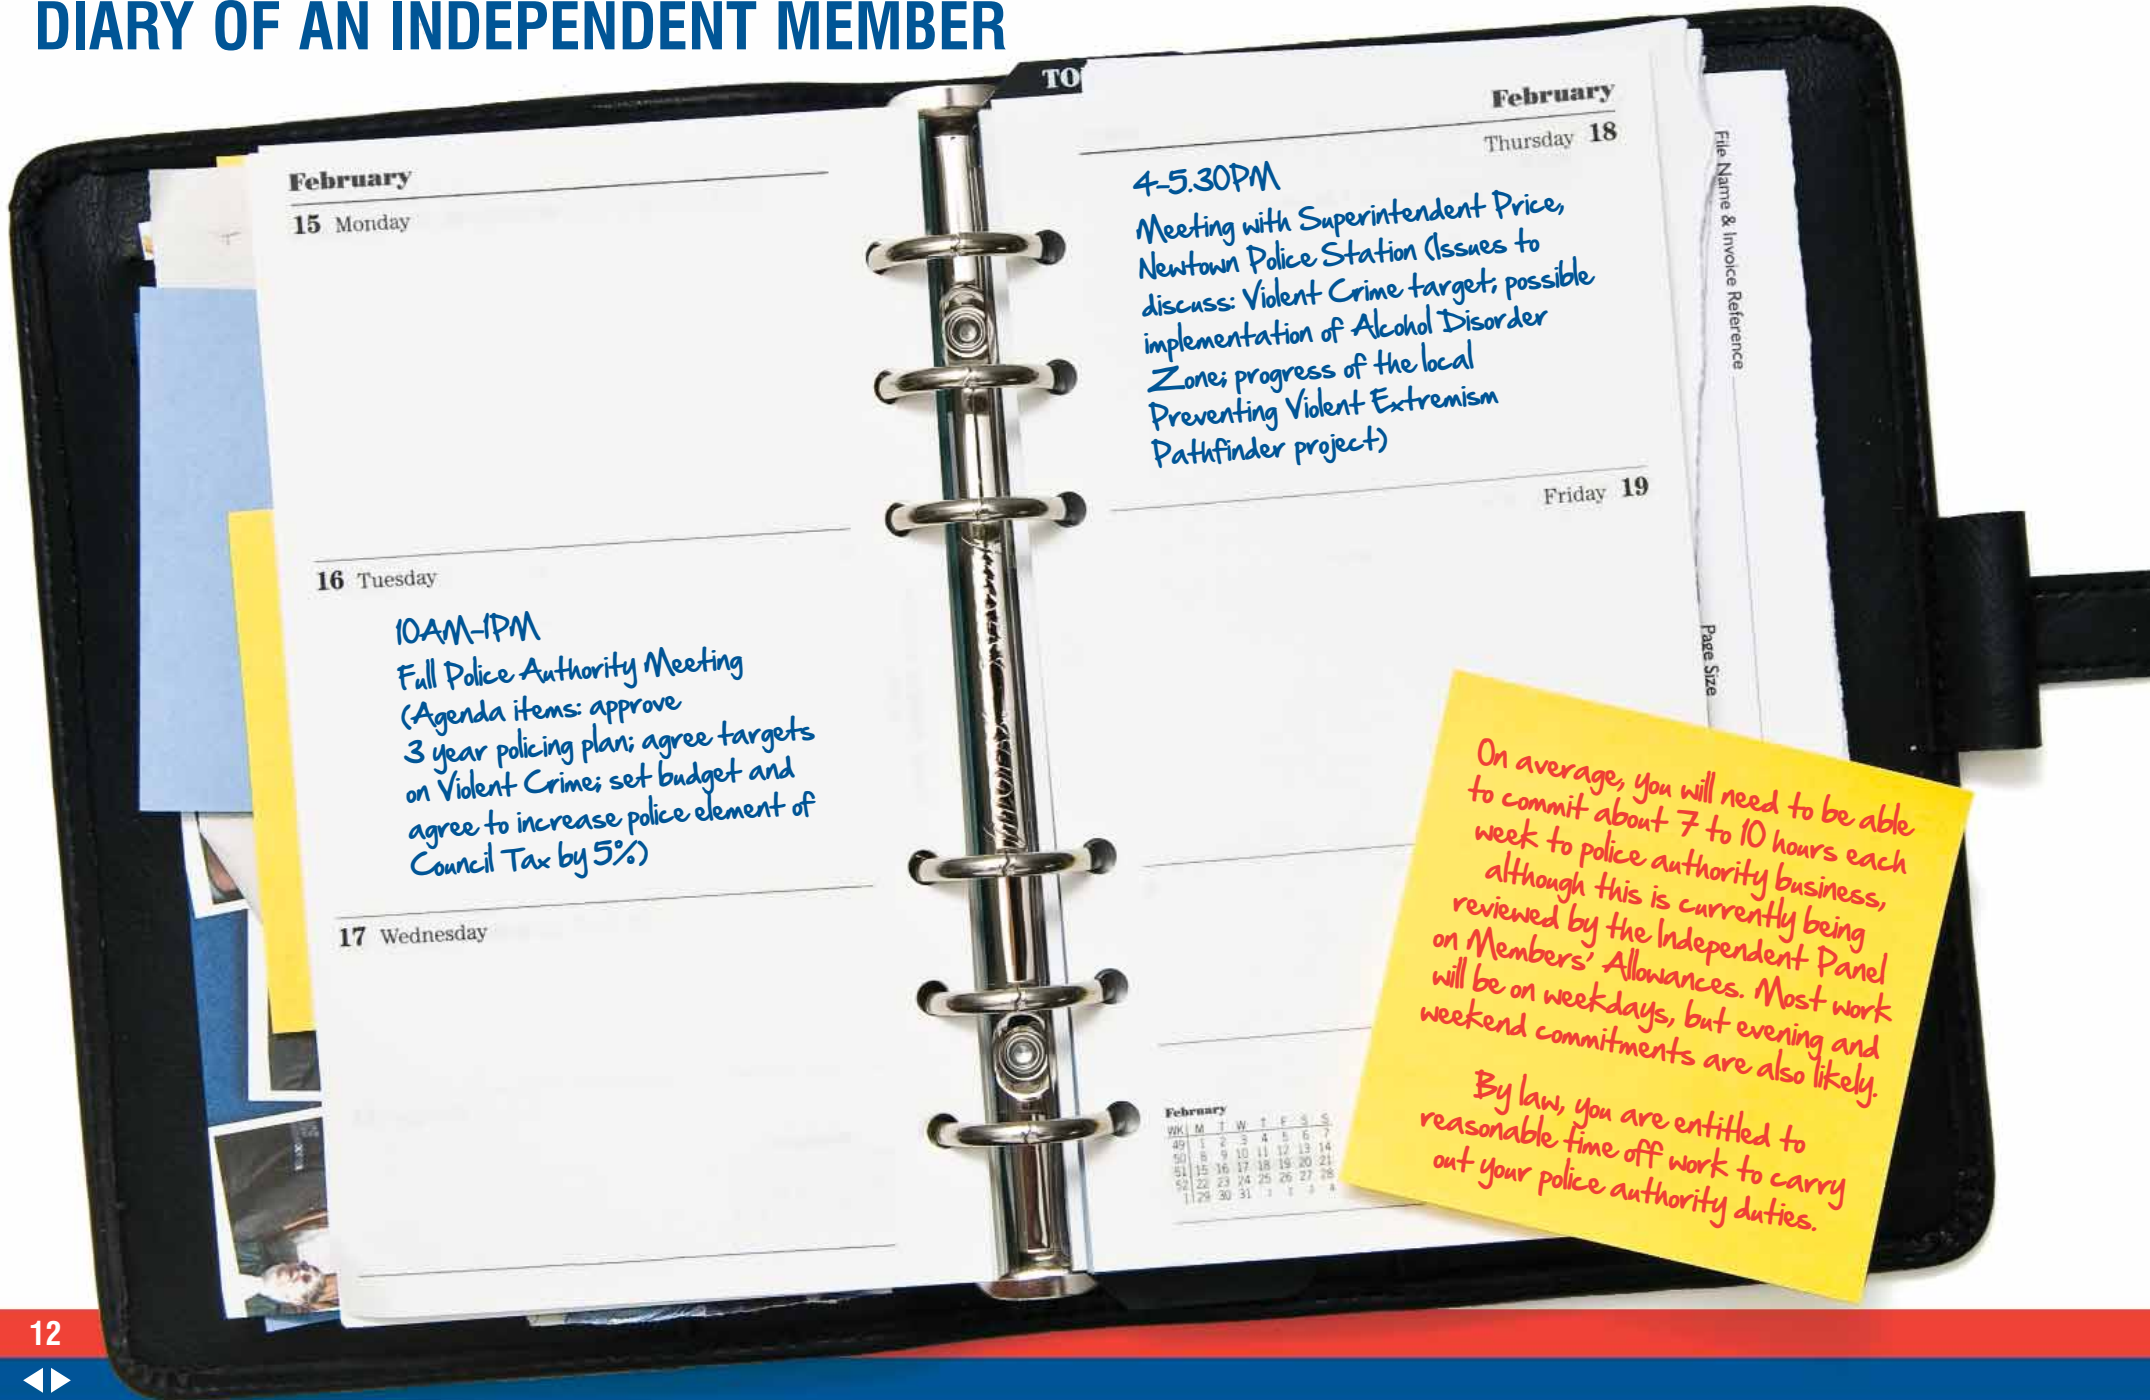 DIARY OF AN INDEPENDENT MEMBER
TO
February
15 Monday
16 Tuesday
10AM-1PM
Full Police Authority Meeting
(Agenda items: approve
3 year policing plan; agree targets
on Violent Crime; set budget and
agree to increase police element of
Council Tax by 5%)
17 Wednesday
February
Thursday 18
4-5.30PM
Meeting with Superintendent Price,
Newtown Police Station (Issues to
discuss: Violent Crime target; possible
implementation of Alcohol Disorder
Zone; progress of the local
Preventing Violent Extremism
Pathfinder project)
Friday 19
File Name & Invoice Reference
Page Size
On average, you will need to be able
to commit about 7 to 10 hours each
week to police authority business,
although this is currently being
reviewed by the Independent Panel
on Members' Allowances. Most work
will be on weekdays, but evening and
weekend commitments are also likely.
By law, you are entitled to
reasonable time off work to carry
out your police authority duties.
February
WK M T W T F S S
49 1 2 3 4 5 6 7
50 8 9 10 11 12 13 14
51 15 16 17 18 19 20 21
52 22 23 24 25 26 27 28
1 29 30 31 1 2 3 4
12